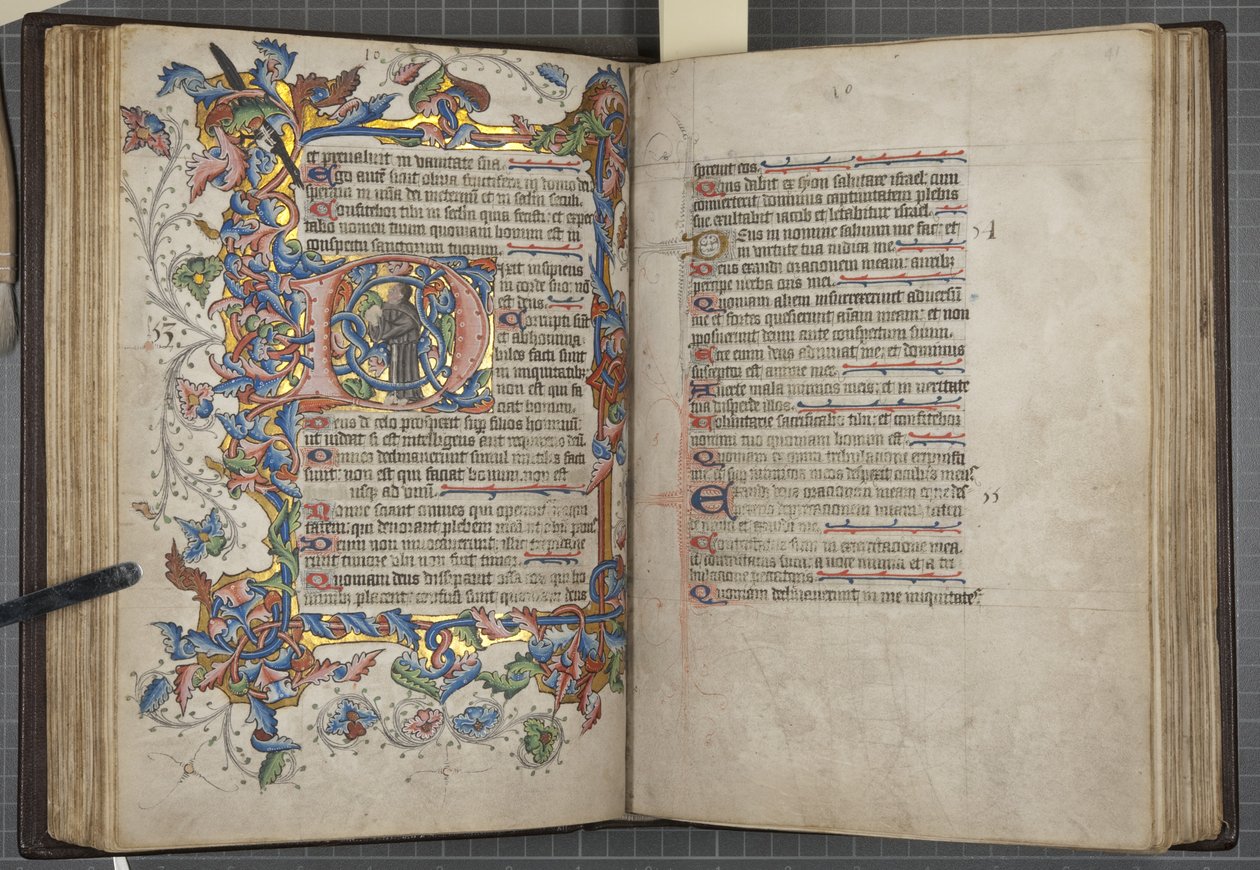 10
et preualuit in vanitate sua.
Ego autē sicut oliua fructifera in domo dei
speraui in mīa dei in eternū et in seclm secli.
Confitebor tibi in seclm quia fecisti: et expec
tabo nomen tuum quoniam bonum est in
conspectu sanctorum tuorum.
53.
Dixit insipiens
in corde suo: nō
est deus.
Corrupti sūt
et abhomina
biles facti sunt
in iniquitatibꝫ
non est qui fa
ciat bonum.
Deus de celo prospexit sup̄ filios hominū:
ut uideat si est intelligens aut requirens deū.
Omnes declinauerunt simul inutiles facti
sunt: non est qui faciat bonum. non est
usqꝫ ad vnū.
Nonne scient omnes qui iniqui
tatem. qui deuorant plebem meā ut cibū panis
Deum non inuocauerunt: illic trepidaue
runt timore vbi non fuit timor.
Quoniam deus dissipauit ossa eoꝝ qui ho
minibꝫ placent: confusi sunt quoniam deus
10
41
spreuit eos.
Quis dabit ex syon salutare israel: cum
conuerterit dominus captiuitatem plebis
sue exultabit iacob et letabitur israel.
Deus in nomine saluum me fac: et
54
in virtute tua iudica me.
Deus exaudi oracionem meam: auribꝫ
percipe uerba oris mei.
Quoniam alieni insurrexerunt aduersū
me et fortes quesierunt aīam meam: et non
posuerunt deum ante conspectum suum.
Ecce enim deus adiuuat me: et dominus
susceptor est anime mee.
Auerte mala inimicis meis: et in ueritate
tua disperde illos.
Voluntarie sacrificabo tibi: et confitebor
nomini tuo quoniam bonum est.
Quoniam ex omni tribulacione eripuisti
me: et sup̄ inimicos meos despexit oculus meus
Exaudi deus oracionem meam et ne des
55
pexeris deprecacionem meam: inten
de michi et exaudi me.
Contristatus sum in exercitacione mea.
et conturbatus sum: a voce inimici et a tri
bulacione peccatoris.
Quoniam declinauerunt in me iniquitates